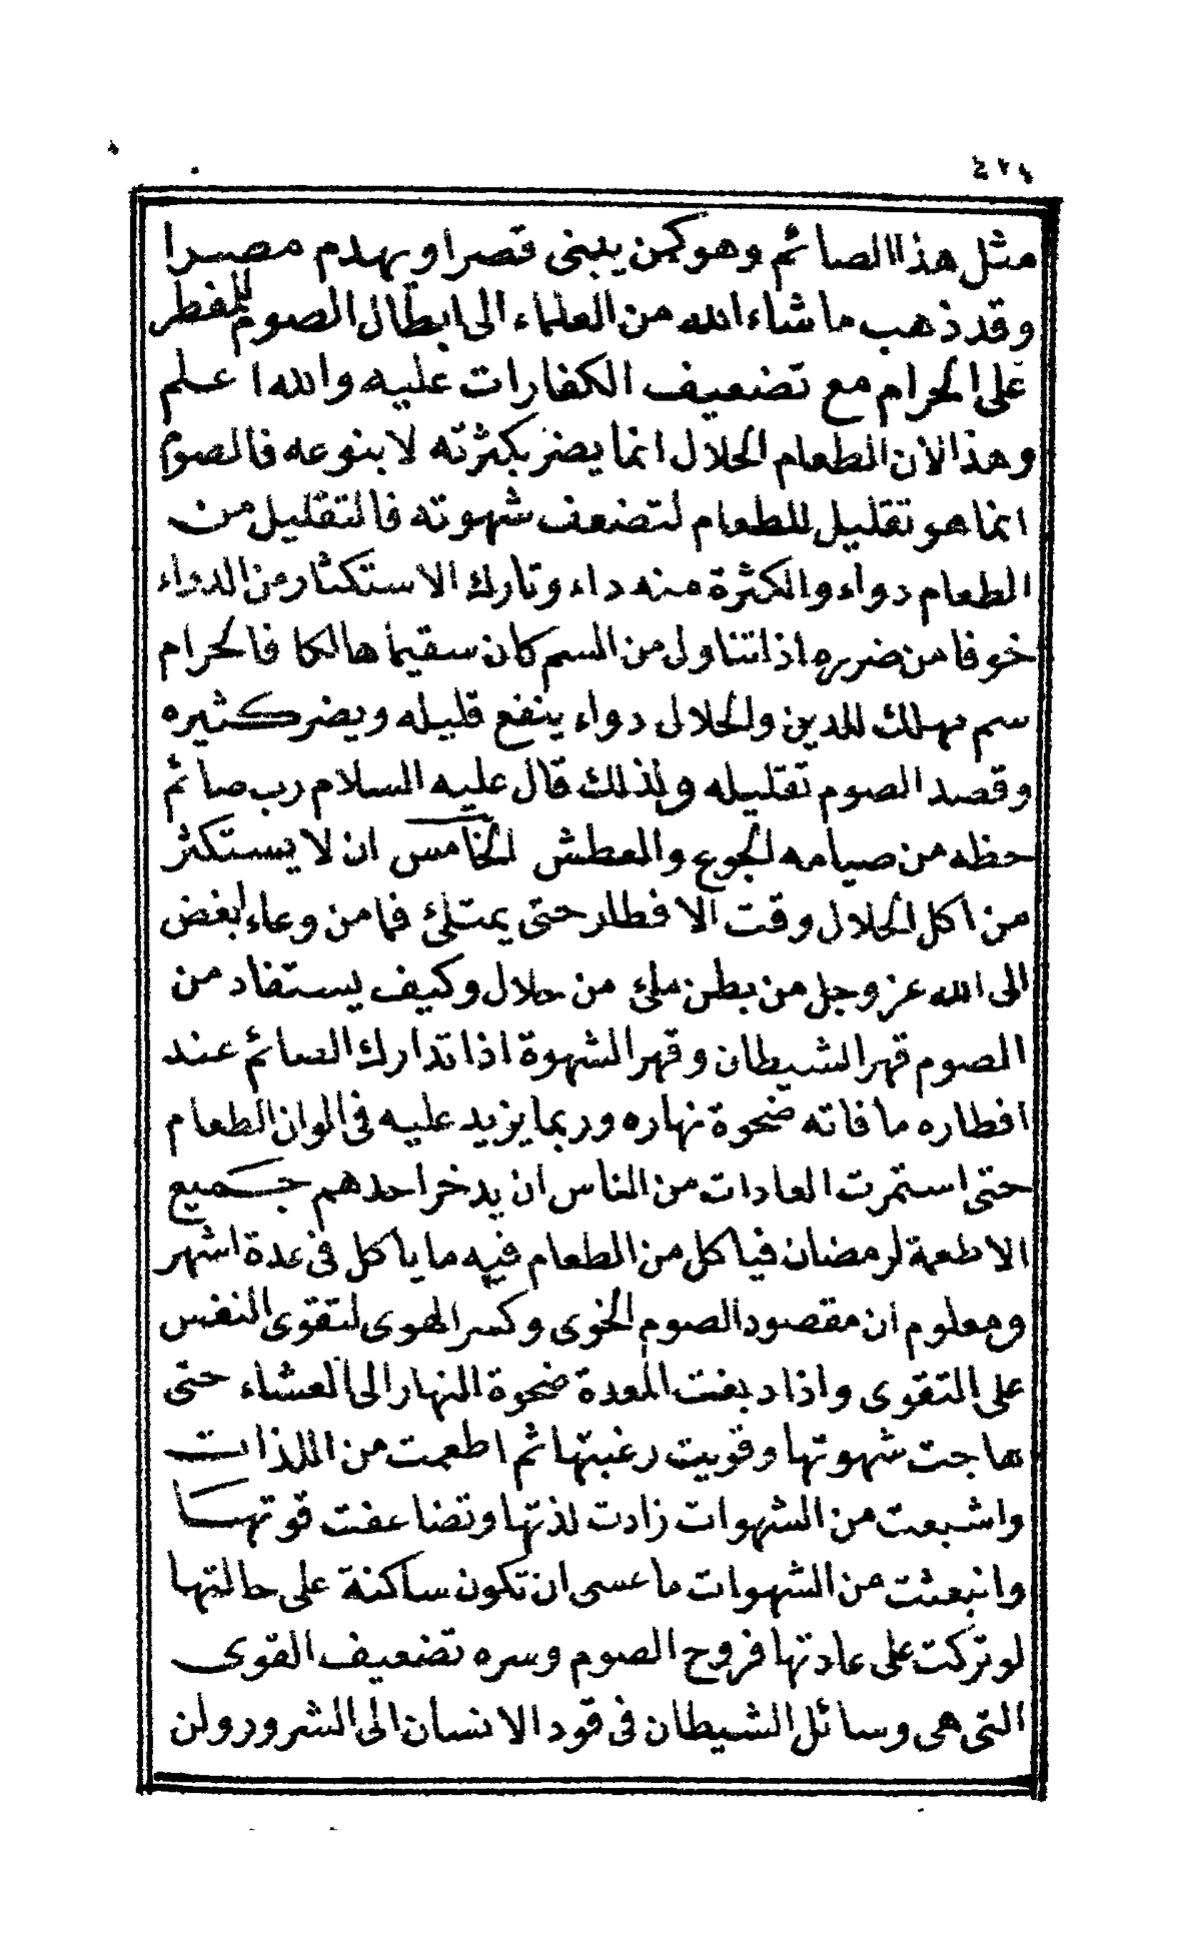 مثل هذا الصائم وهو كمن يبنى قصرا ويهدم مصرا
وقد ذهب ما شاء الله من العلماء الى ابطال الصوم للمفطر
على الحرام مع تضعيف الكفارات عليه والله اعلم
وهذا لان الطعام الحلال انما يضر بكثرته لا بنوعه فالصوم
انما هو تقليل للطعام لتضعف شهوته فالتقليل من
الطعام دواء والكثرة منه داء وتارك الاستكثار من الدواء
خوفا من ضرره اذا تناول من السم كان سقيما هالكا فالحرام
سم مهلك للدين والحلال دواء ينفع قليله ويضر كثيره
وقصد الصوم تقليله ولذلك قال عليه السلام رب صائم
حظه من صيامه الجوع والعطش الخامس ان لا يستكثر
من اكل الحلال وقت الافطار حتى يمتلئ فما من وعاء ابغض
الى الله عز وجل من بطن ملئ من حلال وكيف يستفاد من
الصوم قهر الشيطان وقهر الشهوة اذا تدارك الصائم عند
افطاره ما فاته ضحوة نهاره وربما يزيد عليه فى الوان الطعام
حتى استمرت العادات من الناس ان يدخر احدهم جميع
الاطعمة لرمضان فيأكل من الطعام فيه ما يأكل فى عدة اشهر
ومعلوم ان مقصود الصوم الخوى وكسر الهوى لتقوى النفس
على التقوى واذا دبغت المعدة ضحوة النهار الى العشاء حتى
هاجت شهوتها وقويت رغبتها ثم اطعمت من اللذات
واشبعت من الشهوات زادت لذتها وتضاعفت قوتها
وانبعثت من الشهوات ما عسى ان تكون ساكنة على حالتها
لو تركت على عادتها فروح الصوم وسره تضعيف القوى
التى هى وسائل الشيطان فى قود الانسان الى الشرور ولن